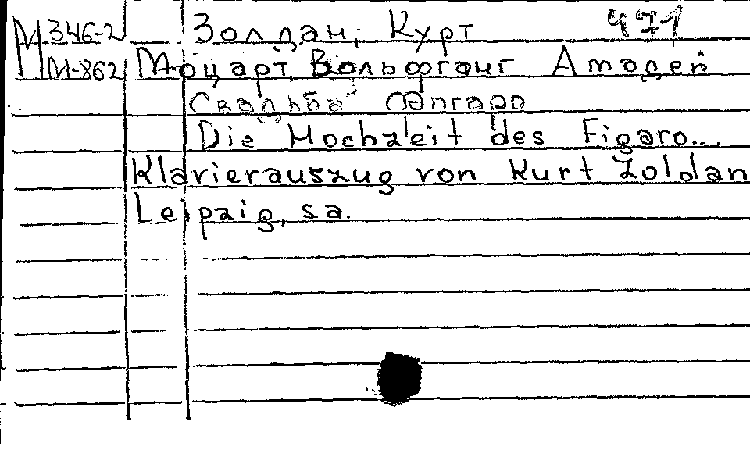 М 346-2 Золдан, Курт 471
М-862 Моцарт, Вольфганг Амадей
Свадьба Фигаро
Die Hochzeit des Figaro...
Klavierauszug von Kurt Zoldan
Leipzig, sa.